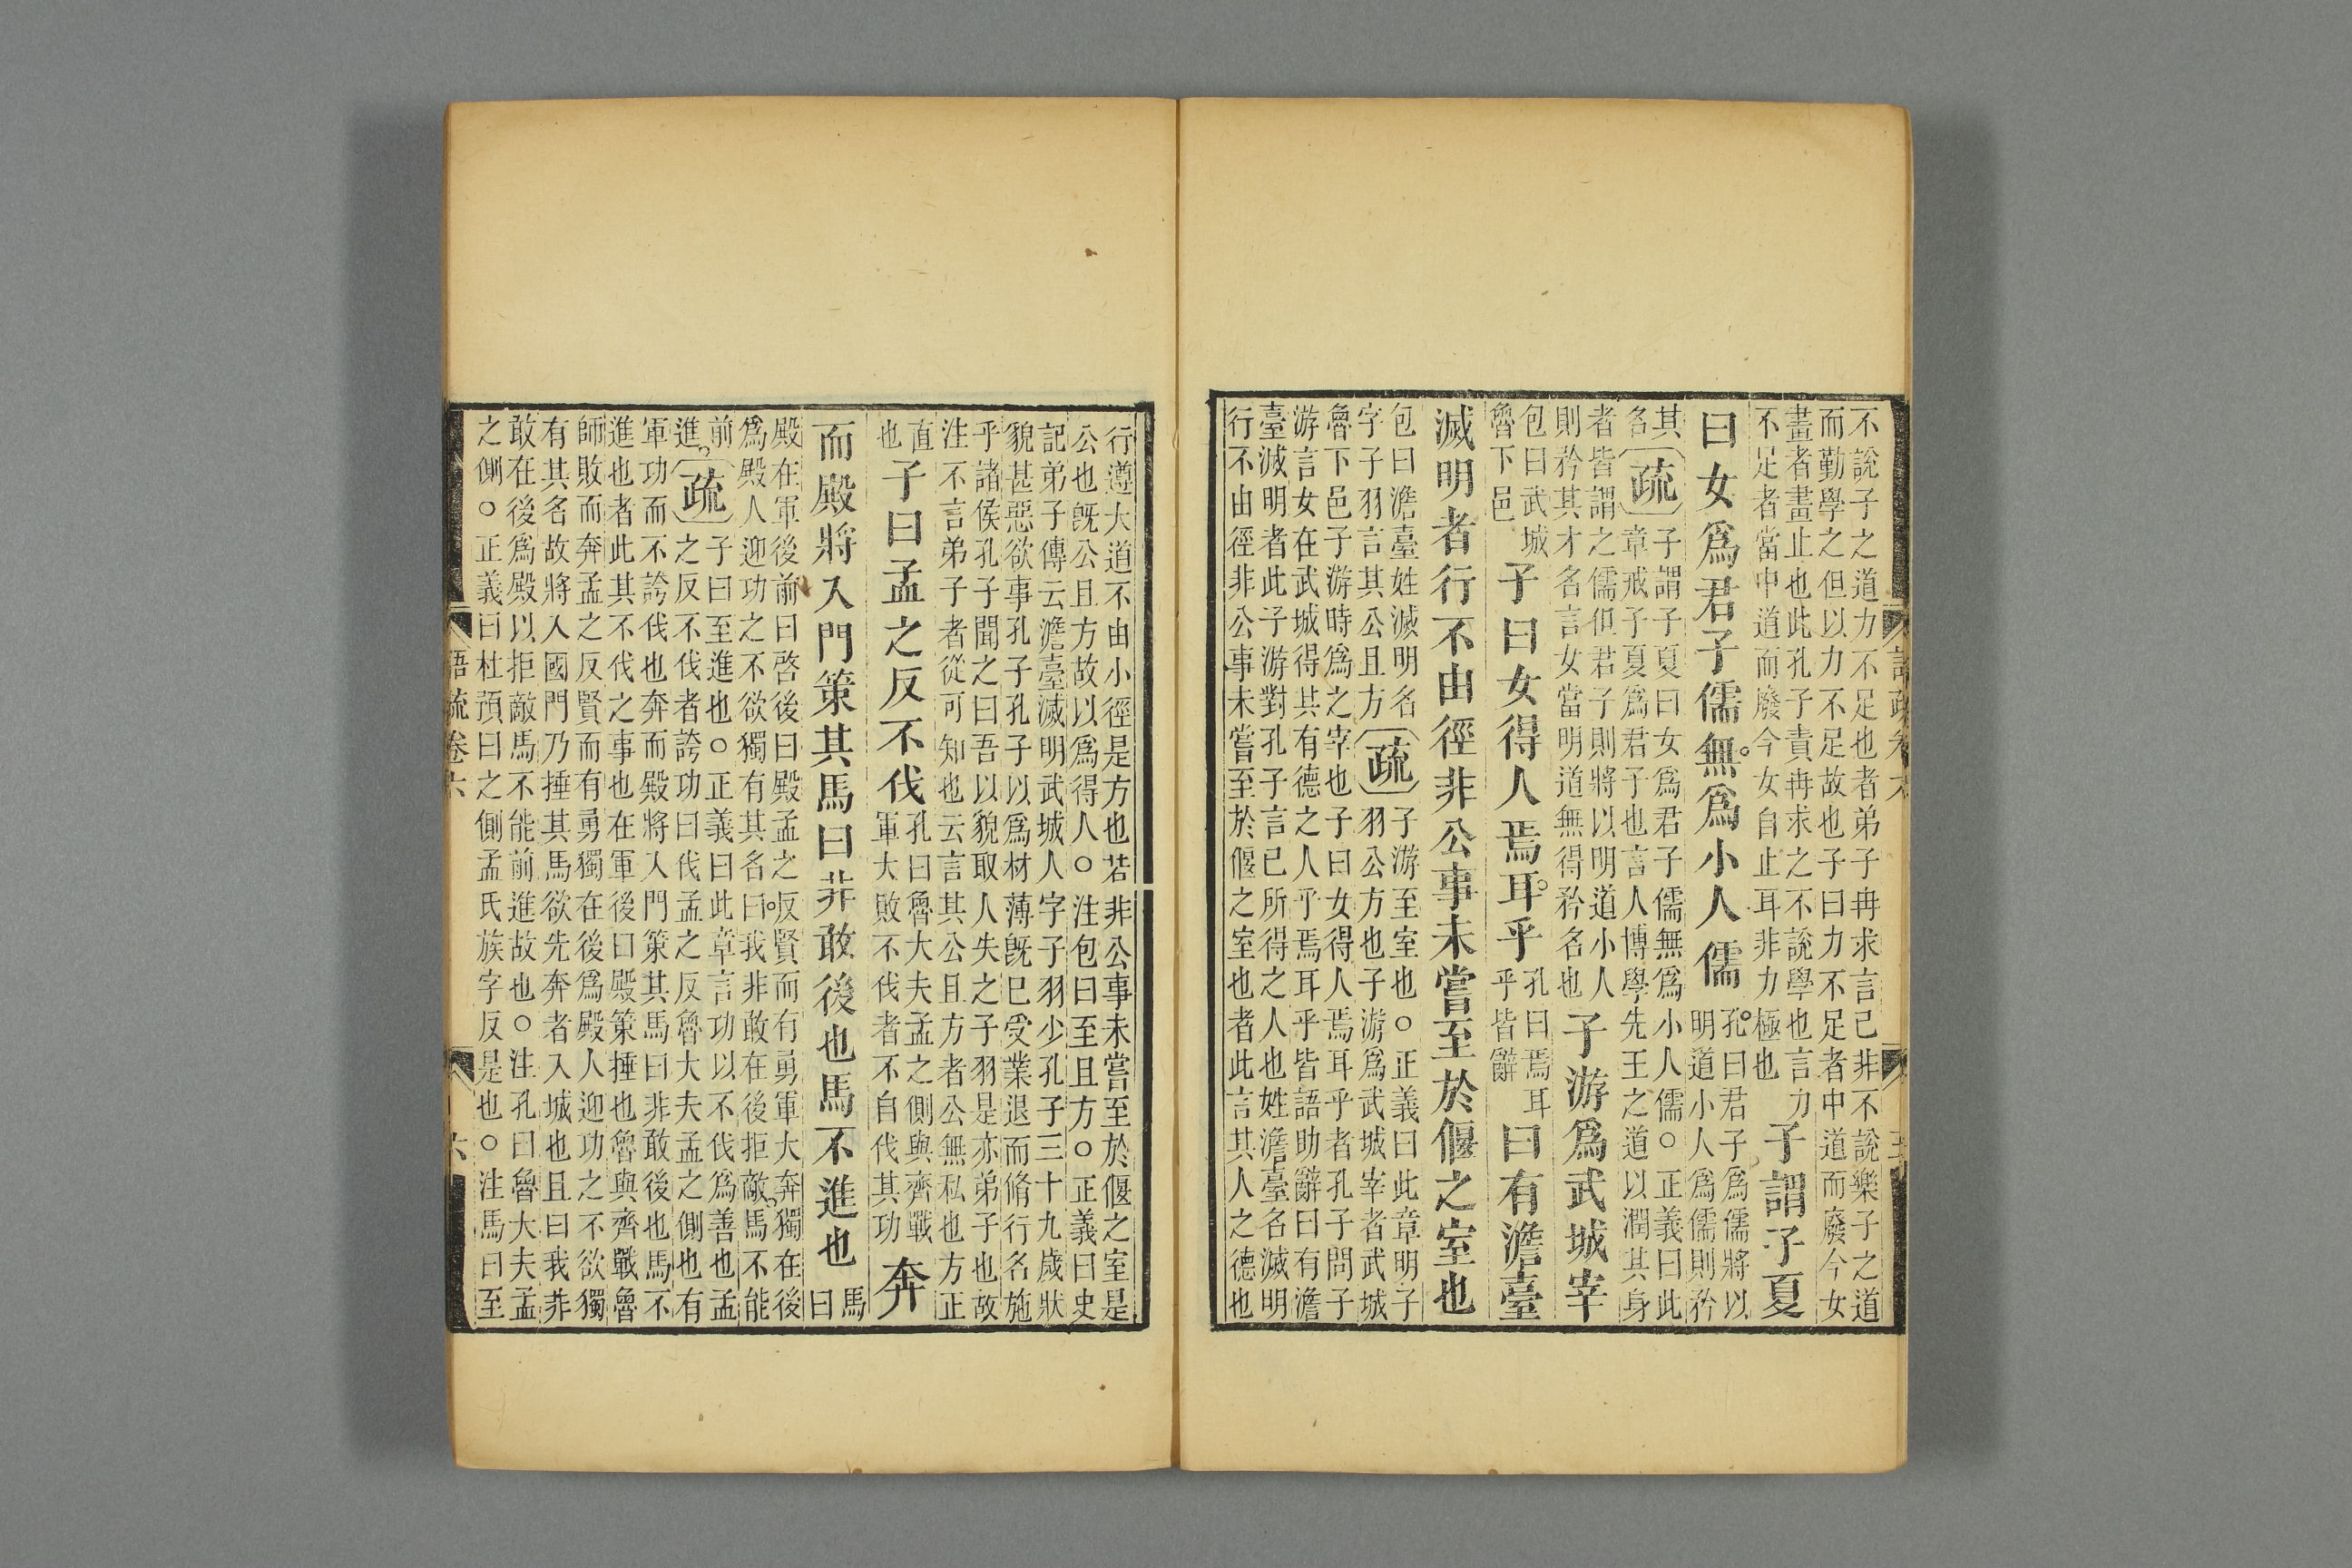 不說子之道力不足也者弟子冉求言己非不說樂子之道
而勤學之但以力不足故也子曰力不足者中道而廢今女
畫者畫止也此孔子責冉求之不說學也言力
不足者當中道而廢今女自止耳非力極也
子謂子夏
曰女爲君子儒無爲小人儒
孔曰君子爲儒將以
明道小人爲儒則矜
其
名
疏
子謂子夏曰女爲君子儒無爲小人儒○正義曰此
章戒子夏爲君子也言人博學先王之道以潤其身
者皆謂之儒但君子則將以明道小人
則矜其才名言女當明道無得矜名也
子游爲武城宰
包曰武城
魯下邑
子曰女得人焉耳乎
孔曰焉耳
乎皆辭
曰有澹臺
滅明者行不由徑非公事未嘗至於偃之室也
包曰澹臺姓滅明名
字子羽言其公且方
疏
子游至室也○正義曰此章明子
羽公方也子游爲武城宰者武城
魯下邑子游時爲之宰也子曰女得人焉耳乎者孔子問子
游言女在武城得其有德之人乎焉耳乎皆語助辭曰有澹
臺滅明者此子游對孔子言己所得之人也姓澹臺名滅明
行不由徑非公事未嘗至於偃之室也者此言其人之德也
行遵大道不由小徑是方也若非公事未嘗至於偃之室是
公也旣公且方故以爲得人○注包曰至且方○正義曰史
記弟子傳云澹臺滅明武城人字子羽少孔子三十九歲狀
貌甚惡欲事孔子孔子以爲材薄旣已受業退而脩行名施
乎諸侯孔子聞之曰吾以貌取人失之子羽是亦弟子也故
注不言弟子者從可知也云言其公且方者公無私也方正
直
也
子曰孟之反不伐
孔曰魯大夫孟之側與齊戰
軍大敗不伐者不自伐其功
奔
而殿將入門策其馬曰非敢後也馬不進也
馬
曰
殿在軍後前曰啓後曰殿孟之反賢而有勇軍大奔獨在後
爲殿人迎功之不欲獨有其名曰我非敢在後拒敵馬不能
前
進
疏
子曰至進也○正義曰此章言功以不伐爲善也孟
之反不伐者誇功曰伐孟之反魯大夫孟之側也有
軍功而不誇伐也奔而殿將入門策其馬曰非敢後也馬不
進也者此其不伐之事也在軍後曰殿策捶也魯與齊戰魯
師敗而奔孟之反賢而有勇獨在後爲殿人迎功之不欲獨
有其名故將入國門乃捶其馬欲先奔者入城也且曰我非
敢在後爲殿以拒敵馬不能前進故也○注孔曰魯大夫孟
之側○正義曰杜預曰之側孟氏族字反是也○注馬曰至
語疏卷六
六